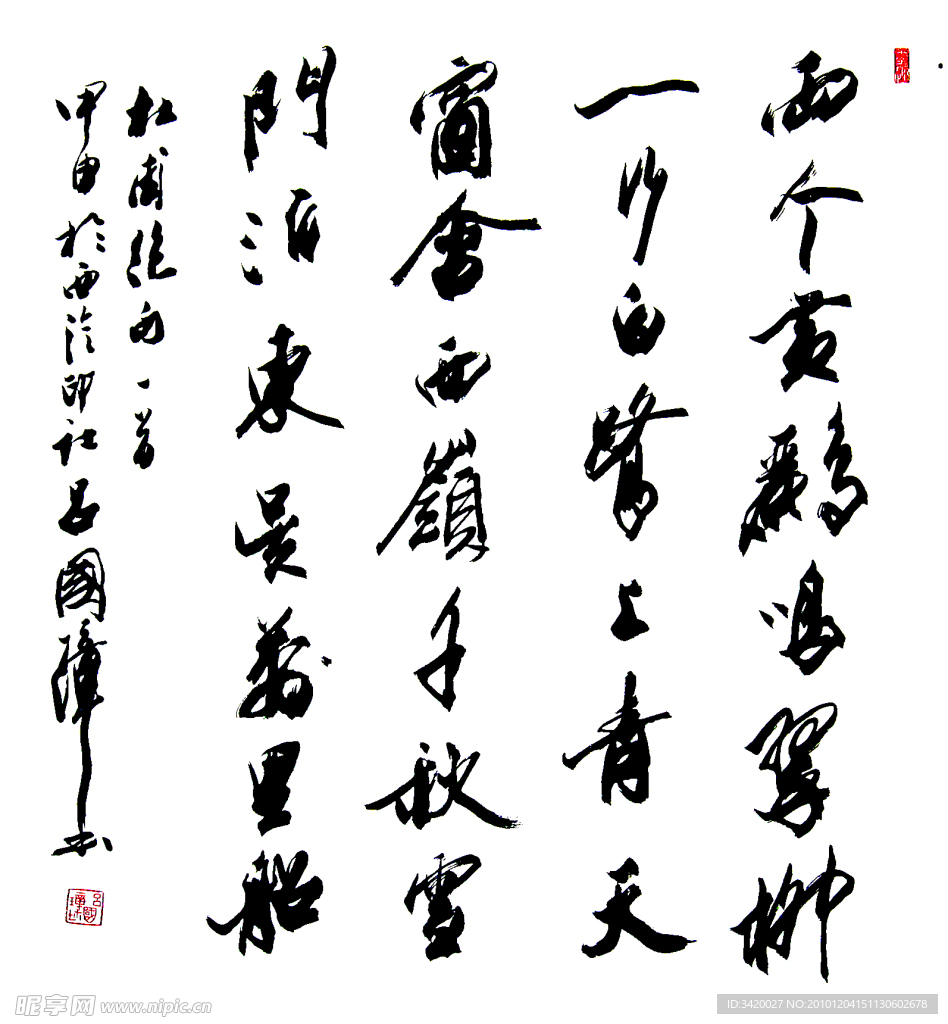 两个黄鹂鸣翠柳
一行白鹭上青天
窗含西嶺千秋雪
門泊東吴萬里船
杜甫绝句一首
甲申於西泠印社吕國璋书
昵享网 www.nipic.cn
ID:3420027 NO:20101204151130602678